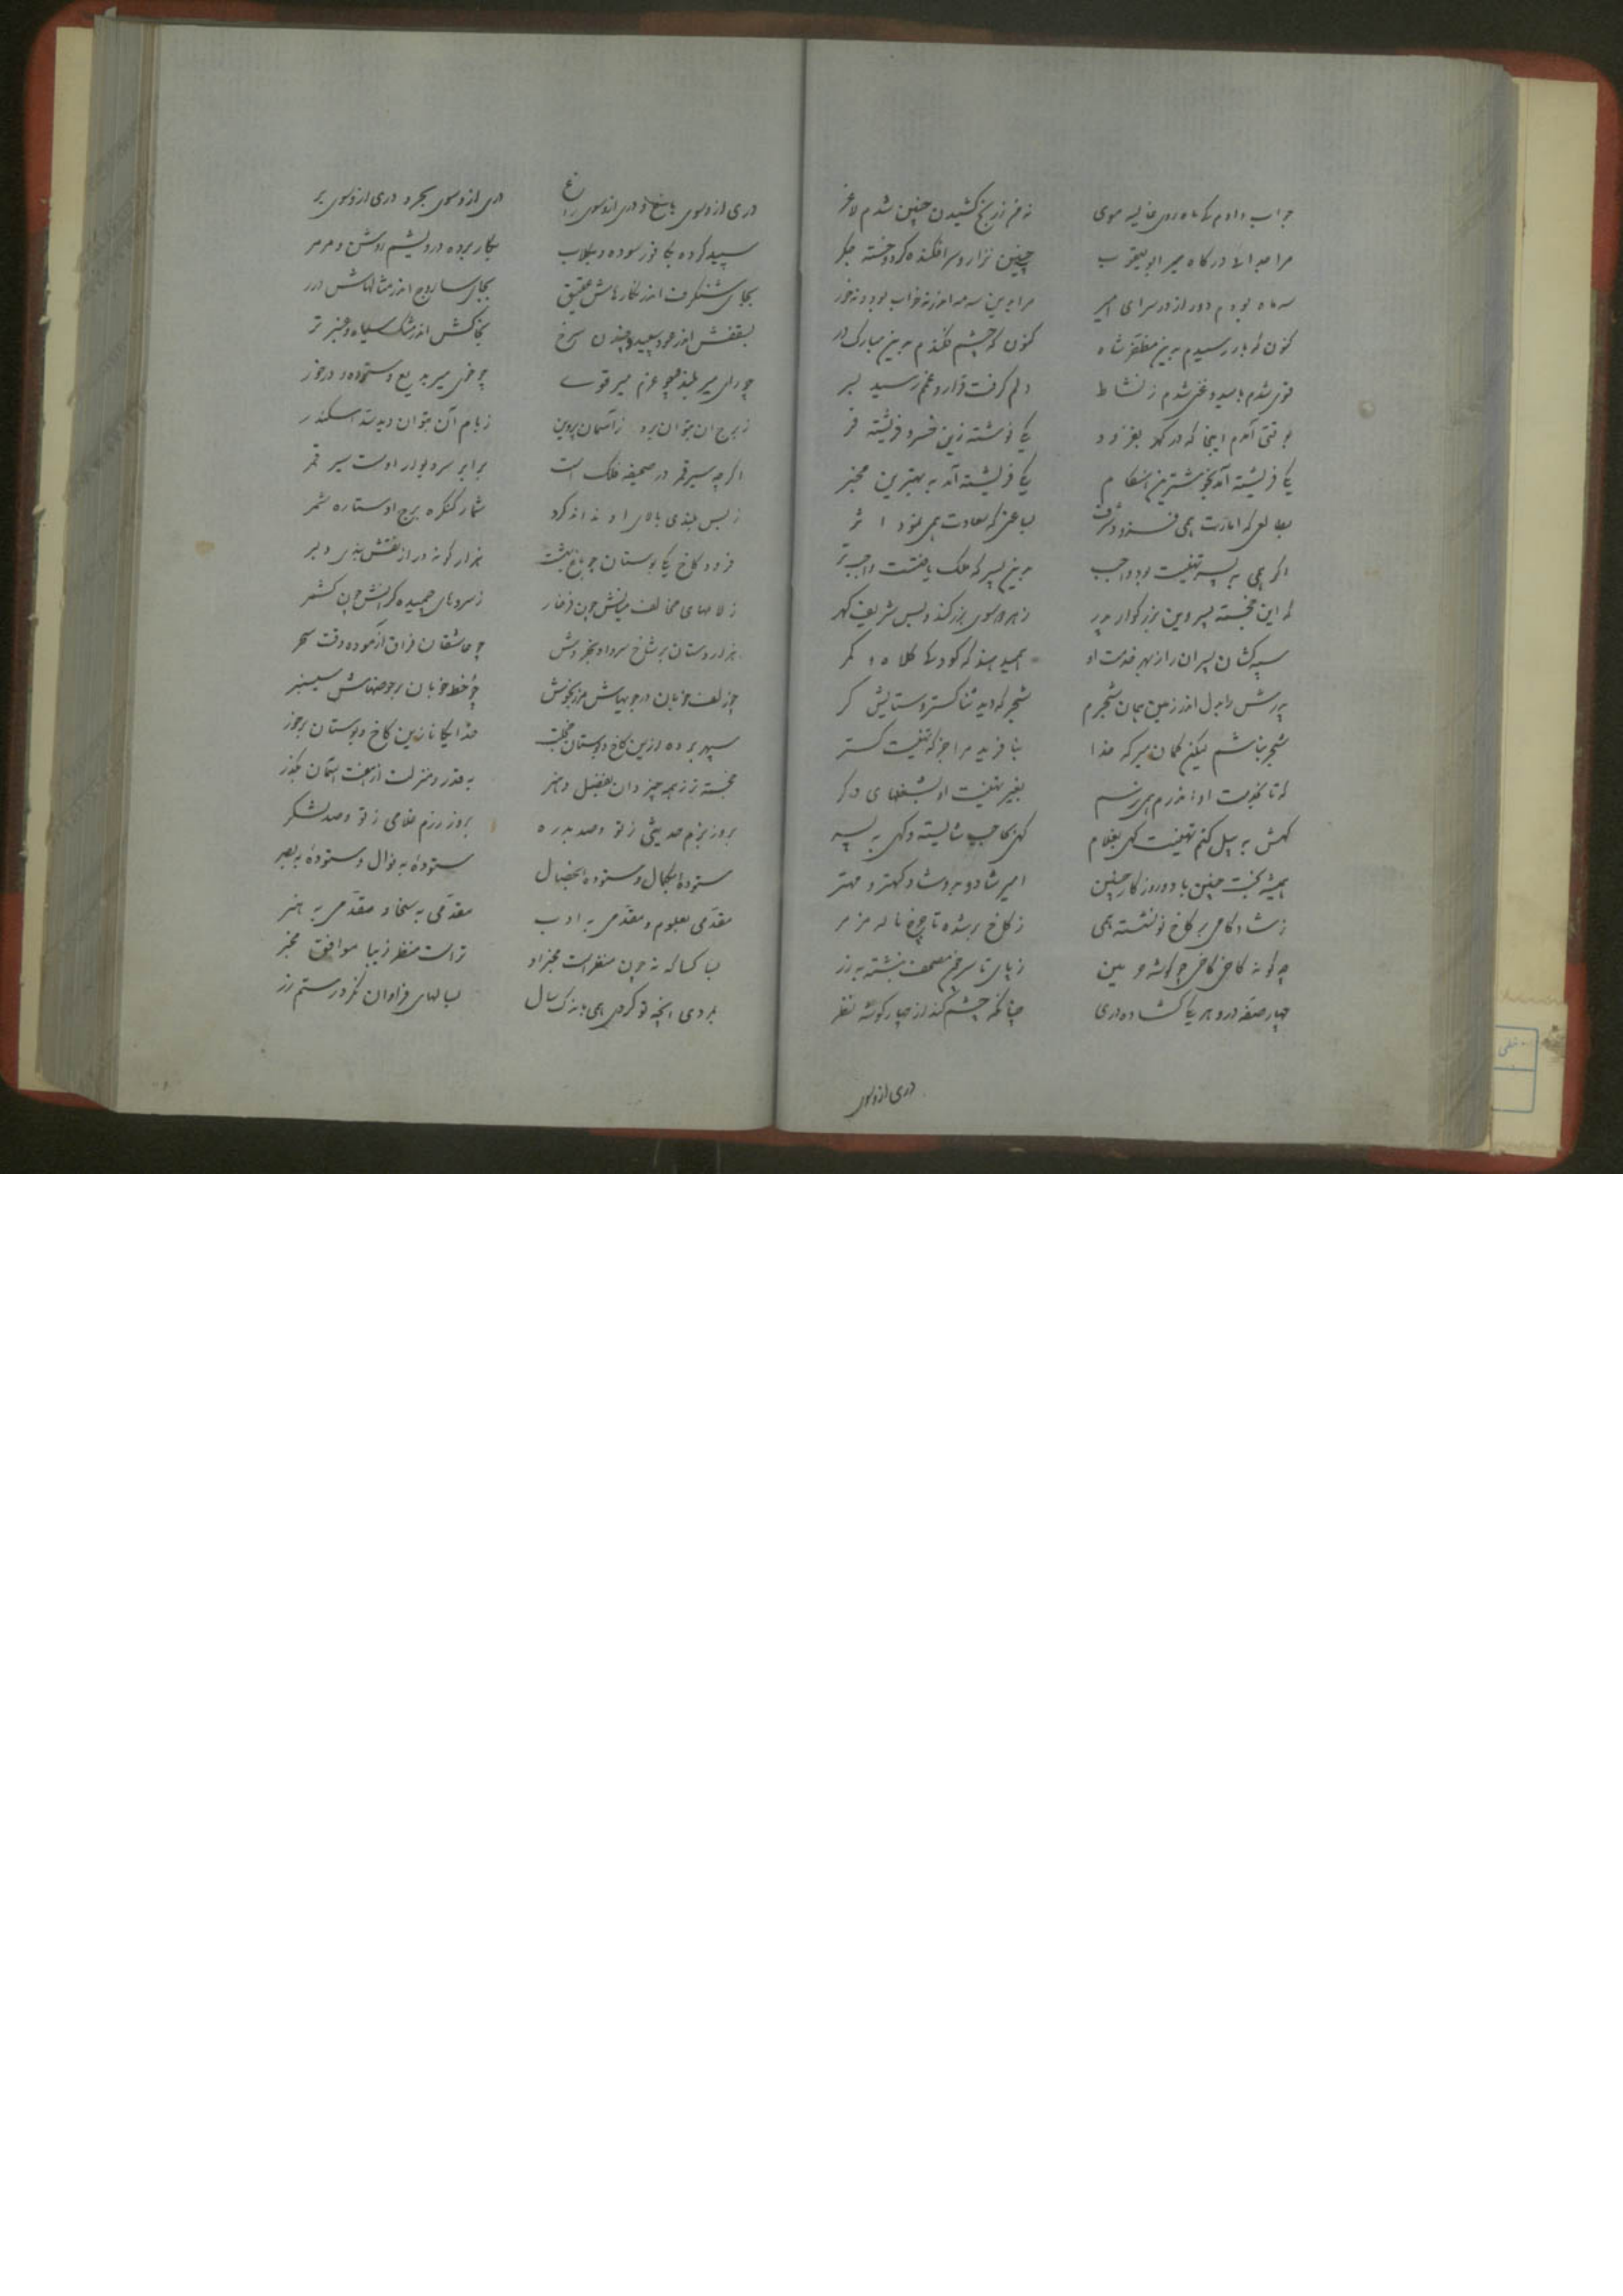 جواب دادم کای ماه روی غالیه موی نه من ز رنج کشیدن چنین شدم لاغر
مرا جدائی درگاه میر ابو یعقوب چنین نزار و سرافکنده کرد و خسته جگر
سه ماه بودم دور از در سرای امیر مرا بدین سه مه اندر نه خواب بود و نه خور
کنون که باز رسیدم بدین مظفر شاه کنون که چشم فکندم بدین مبارک در
قوی شدم بامید و غنی شدم ز نشاط دلم گرفت قرار و غمم رسید بسر
بوقتی آمدم اینجا که در گهر بفزود یکی فرشته زین خسرو فریشته فر
یکی فریشته آمد بخوشترین هنگام یکی فریشته آمد به بهترین مخبر
بطالعی که امارت همی فزود و شرف بساعتی که سعادت همی نمود اثر
اگر همی به پسر تهنیت بود واجب بدین پسر که ملک یافتست واجبتر
که این خجسته پسر وین بزرگوار پدر ز هر دو سوی بزرگند و بس شریف گهر
سپه کشان پسران را ز بهر خدمت او همی دهند بکودکی کلاه و کمر
پدرش را بدل اندر زمین بسان شجرم شجر که دید ثنا گستر و ستایش گر
شجر نباشم لیکن گمان میر که خدا بنا فرید مرا جز که تهنیت گستر
که تا بخدمت او اندرم همی نرسم بغیر تهنیت او بشغلهای دگر
گهش به پیل کنم تهنیت گهی بغلام گهی بحاجب شایسته و گهی به پسر
همیشه بخت چنین باد و روزگار چنین امیر شاد و بدو شاد کهتر و مهتر
ز شادکامی بر کاخ نو نشسته همی ز کاخ بر شده تا چرخ ناله مزمر
چگونه کاخی کاخی چو گنبد هرمین ز پای تا سر چون مصحف نبشته به زر
چهار صفه در و هر یکی گشاده دری چنانکه چشم کند از چهار گوشه نظر
دری از او سوی
دری از او سوی باغ و دری از او سوی راغ دری از او سوی بحر و دری از او سوی بر
سپید کرده بکافور سوده و بگلاب بکار برده در و یشم روشن و مرمر
بجای شنگرف اندر نگارهاش عقیق بجای ساروج اندر مثالهاش درر
بسقفش اندر عود سپید و چندن سرخ بخاکش اندر مشک سیاه و عنبر تر
چو رای میر بلند و چو عزم میر قوی چو خوی میر بدیع و ستوده و درخور
ز برج آن بتوان برد ز آسمان پروین ز بام آن بتوان دید سد اسکندر
اگر چه سیر قمر در صحیفه فلک است برابر سر دیوار اوست سیر قمر
ز بس بلندی بالای او نداند کرد شمار کنگره برج او ستاره شمر
فرود کاخ یکی بوستان چو باغ بهشت هزار گونه در او از نقش بدیع و صور
ز لالهای مخالف میانش چون فرخار ز سروهای خمیده کرانش چون کشمر
هزار دستان بر شاخ سرو او بخروش چو عاشقان فراق آزموده وقت سحر
چو زلف خوبان در جویهاش مرزنگوش چو خط خوبان بر حوضهاش سیسنبر
سپهر برده ازین کاخ و بوستان خجلت خدایگانا زین کاخ و بوستان برخور
خجسته تر ز همه چیز دان بفضل و هنر به قدر و منزلت از هفت آسمان بگذر
بروز بزم حدیثی ز تو و صد بدره بروز رزم غلامی ز تو و صد لشکر
ستوده بکمال و ستوده بخصال ستوده به نوال و ستوده به بصر
مقدمی بعلوم و مقدمی به ادب مقدمی به سخا و مقدمی به هنر
بسا کسا که نه چون منظرست مخبر او تراست منظر زیبا موافق مخبر
بکردی آنچه تو کردی همی باندک سال بسالهای فراوان نکرد رستم زر